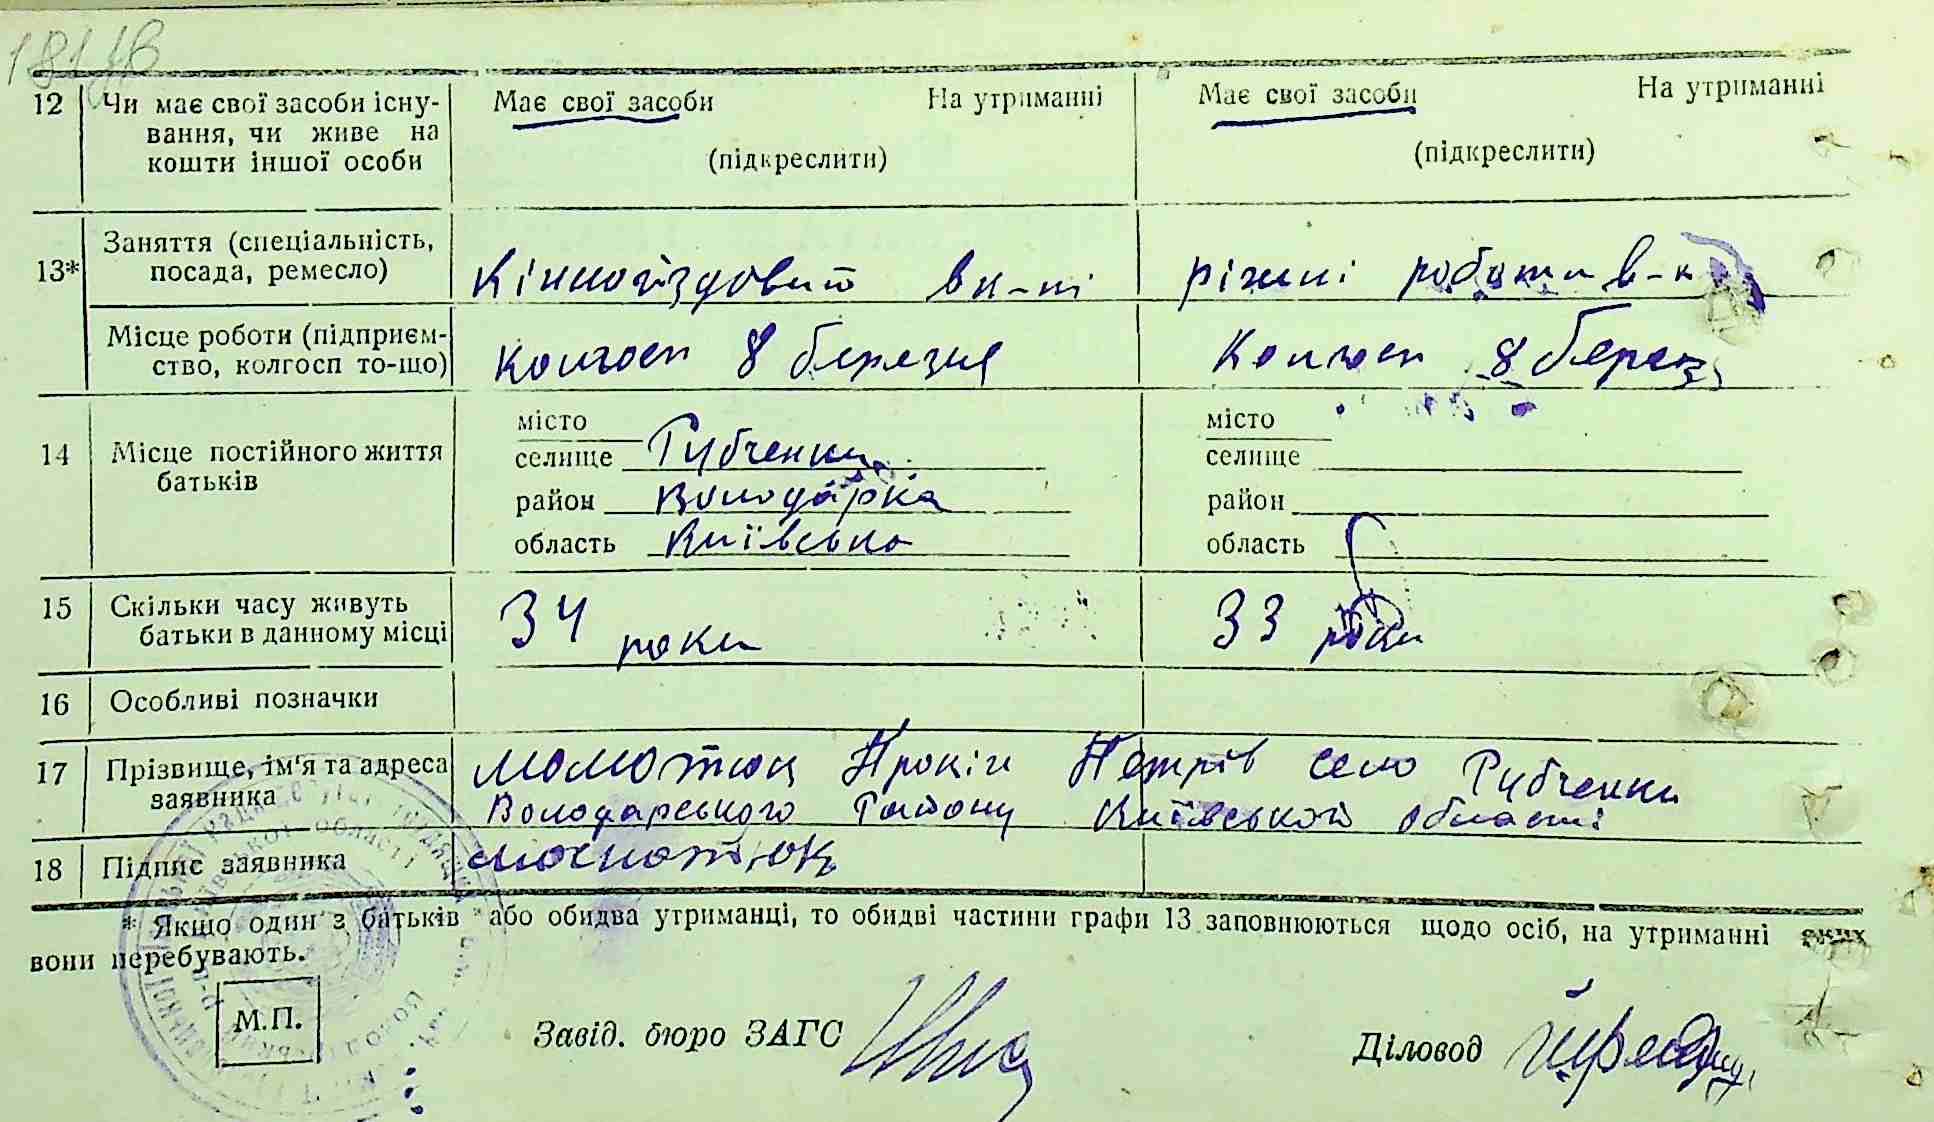 12 Чи має свої засоби існу- Має свої засоби На утриманні Має свої засоби На утриманні
вання, чи живе на
кошти іншої особи (підкреслити) (підкреслити)
Заняття (спеціальність,
13* посада, ремесло) Кінноїздовий в к-пі ріжні роботи в-к
Місце роботи (підприєм-
ство, колгосп то-що) колгосп 8 березня Колгосп 8 берез
місто місто
14 Місце постійного життя селище Рубченки селище
батьків район Володарка район
область Київська область
15 Скільки часу живуть 34 роки 33 роки
батьки в данному місці
16 Особливі позначки
17 Прізвище, ім'я та адреса Момотюк Прокіп Петрів село Рубченки
заявника Володарського Району Київської області
18 Підпис заявника Момотюк
* Якщо один з батьків або обидва утриманці, то обидві частини графи 13 заповнюються щодо осіб, на утриманні яких
вони перебувають.
М.П.
Завід. бюро ЗАГС Діловод